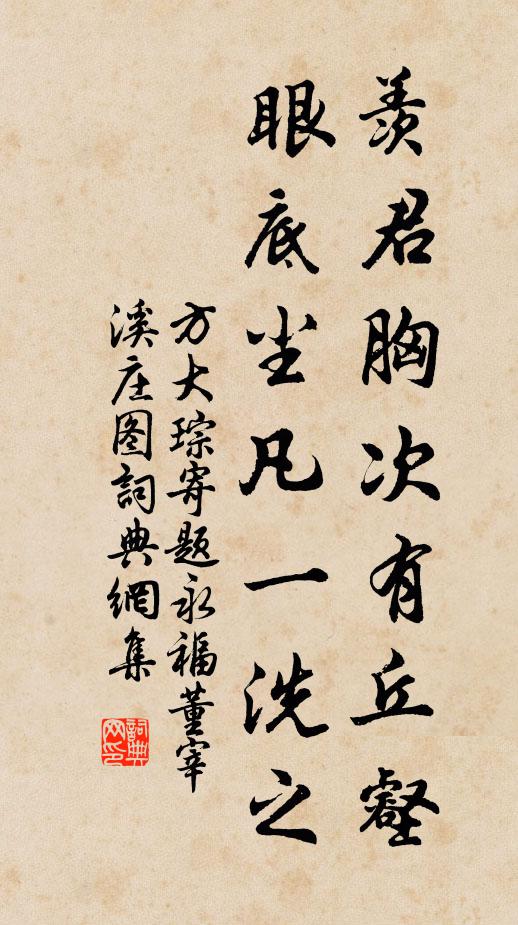 羨君胸次有丘壑
眼底尘凡一洗之
方大琮寄題永福董宰
溪庄图詞典網集
詞典網印